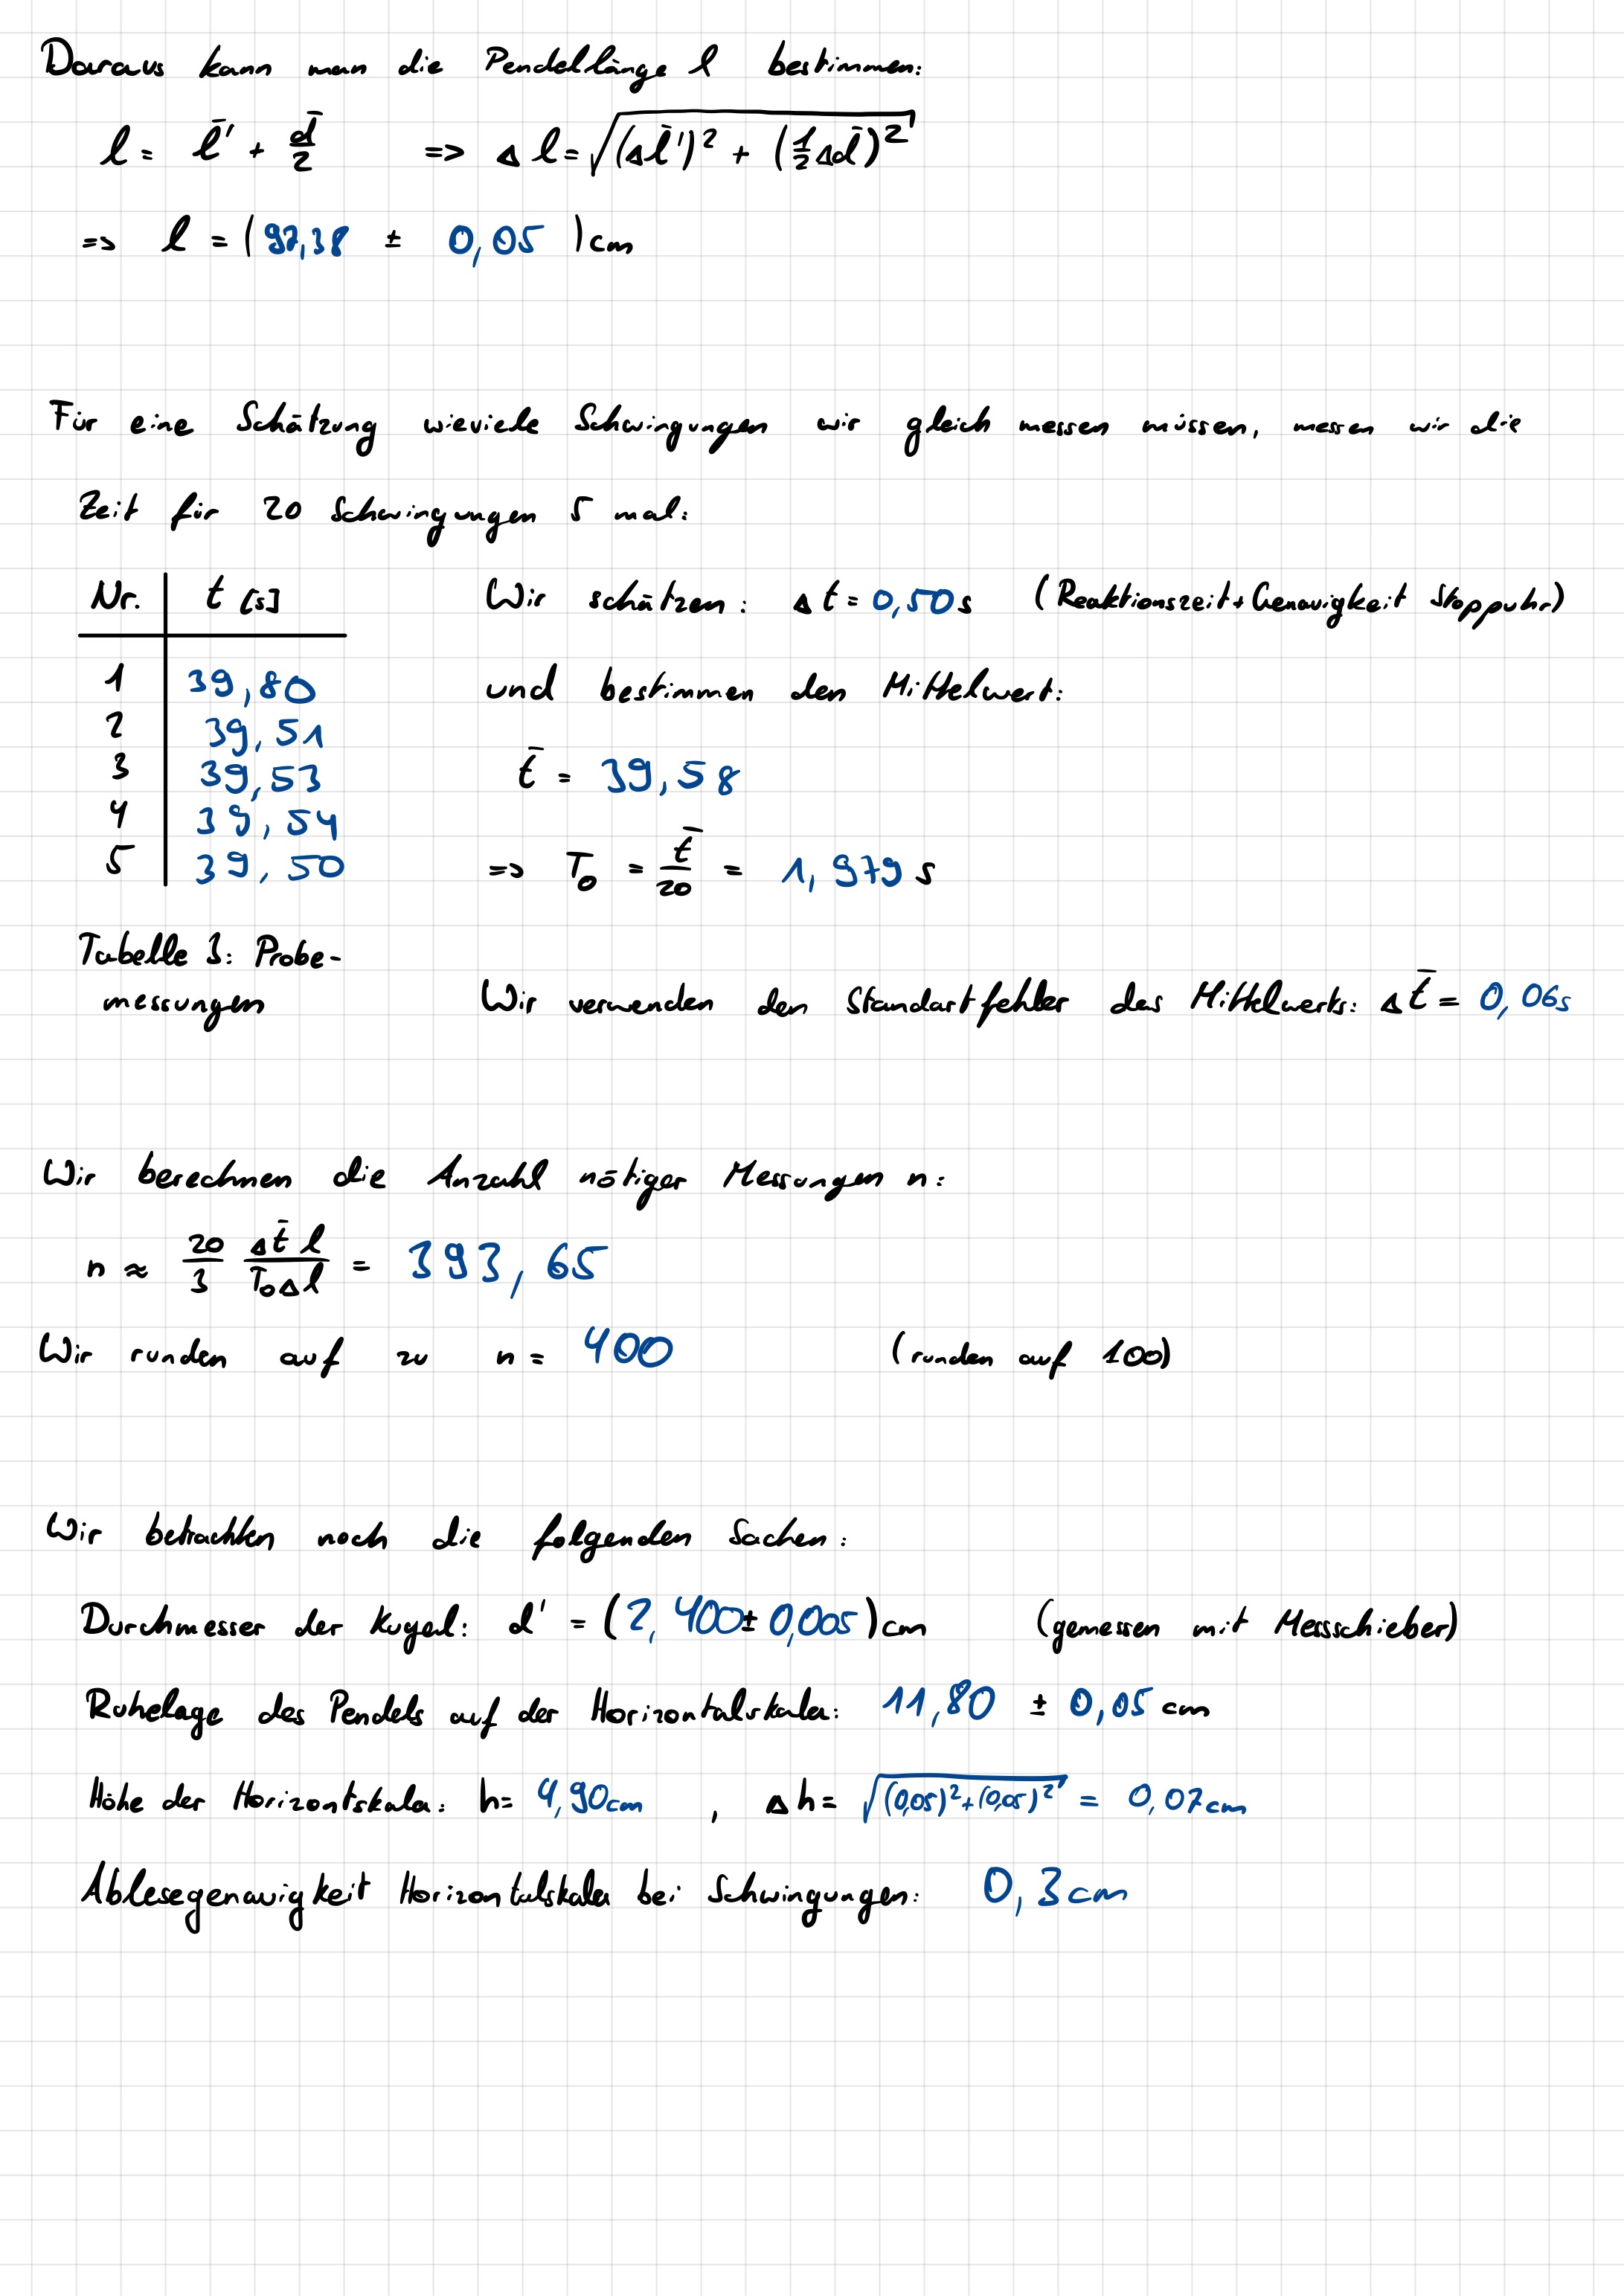 Daraus kann man die Pendellänge l bestimmen:
l = l̄' + d̄/2 => Δl = √((Δl̄')² + (½Δd̄)²)
=> l = (97,38 ± 0,05) cm
Für eine Schätzung wieviele Schwingungen wir gleich messen müssen, messen wir die
Zeit für 20 Schwingungen 5 mal:
Nr. t [s]
1 39,80
2 39,51
3 39,53
4 39,54
5 39,50
Tabelle 3: Probe-
messungen
Wir schätzen: Δt = 0,50 s (Reaktionszeit + Genauigkeit Stoppuhr)
und bestimmen den Mittelwert:
t̄ = 39,58
=> T₀ = t̄/20 = 1,979 s
Wir verwenden den Standartfehler des Mittelwerts: Δt̄ = 0,06s
Wir berechnen die Anzahl nötiger Messungen n:
n ≈ 20/3 Δt̄ l/T₀Δl = 393,65
Wir runden auf zu n = 400 (runden auf 100)
Wir betrachten noch die folgenden Sachen:
Durchmesser der Kugel: d' = (2,400 ± 0,005) cm (gemessen mit Messschieber)
Ruhelage des Pendels auf der Horizontalskala: 11,80 ± 0,05 cm
Höhe der Horizontskala: h = 4,90cm , Δh = √((0,05)² + (0,05)²) = 0,07cm
Ablesegenauigkeit Horizontalskala bei Schwingungen: 0,3cm